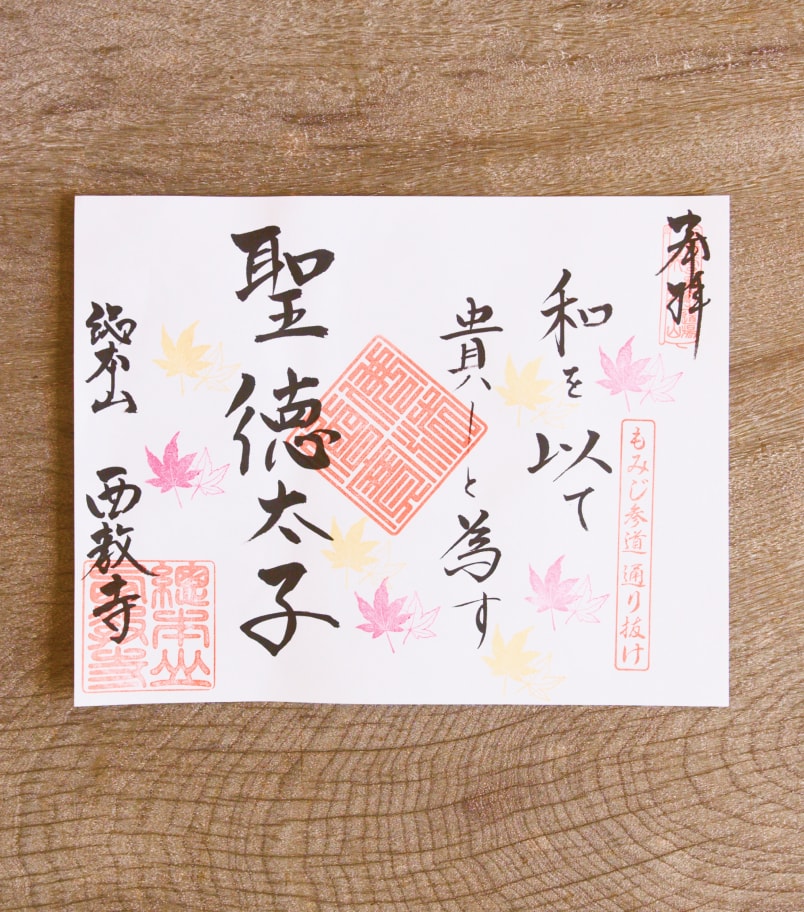 奉拝
もみじ参道通り抜け
和を以て
貴しと為す
聖徳太子
總本山 西教寺
總本山
西教寺